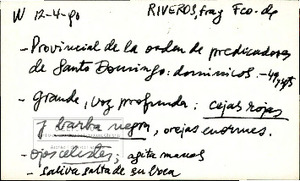 W 12-4-90 RIVEROS, fray Fco. de
- Provincial de la orden de predicadores
de Santo Domingo: dominicos. -49,
- grande, voz profunda: cejas rojas
y barba negra, orejas enormes.
- ojos celestes; agita manos
- saliva salta de su boca